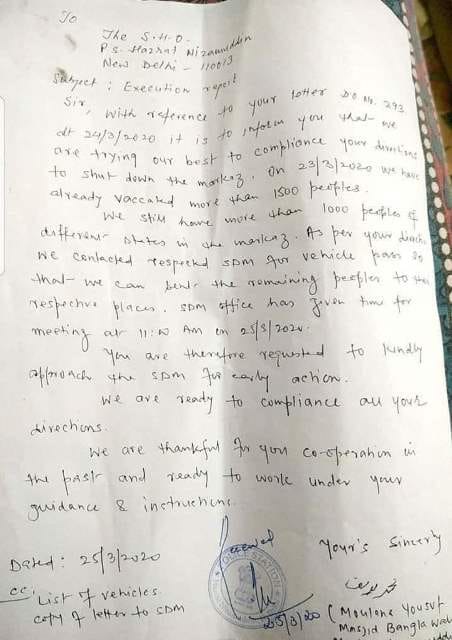 To
The S.H.O.
P.S. Hazrat Nizamuddin
New Delhi - 110013
Subject : Execution report
Sir, With reference to your letter DO No. 293
dt 24/3/2020 it is to inform you that we
are trying our best to compliance your directions
to shut down the markaz. On 23/3/2020 we have
already vaccated more than 1500 peoples.
We still have more than 1000 peoples of
different states in the markaz. As per your
we contacted respected SDM for vehicle pass so
that we can sent the remaining peoples to
respective places. SDM office has given time for
meeting at 11: AM on 25/3/2020.
You are therefore requested to kindly
approach the SDM for early action.
We are ready to compliance all your
directions.
We are thankful for you co-operation in
the past and ready to work under your
guidance & instructions.
Received
POLICE STATION
25/3/20
Your's Sincerly
Dated : 25/3/2020
cc: List of vehicles.
copy of letter to SDM
محمد یوسف
( Moulana Yousuf
Masjid Bangla